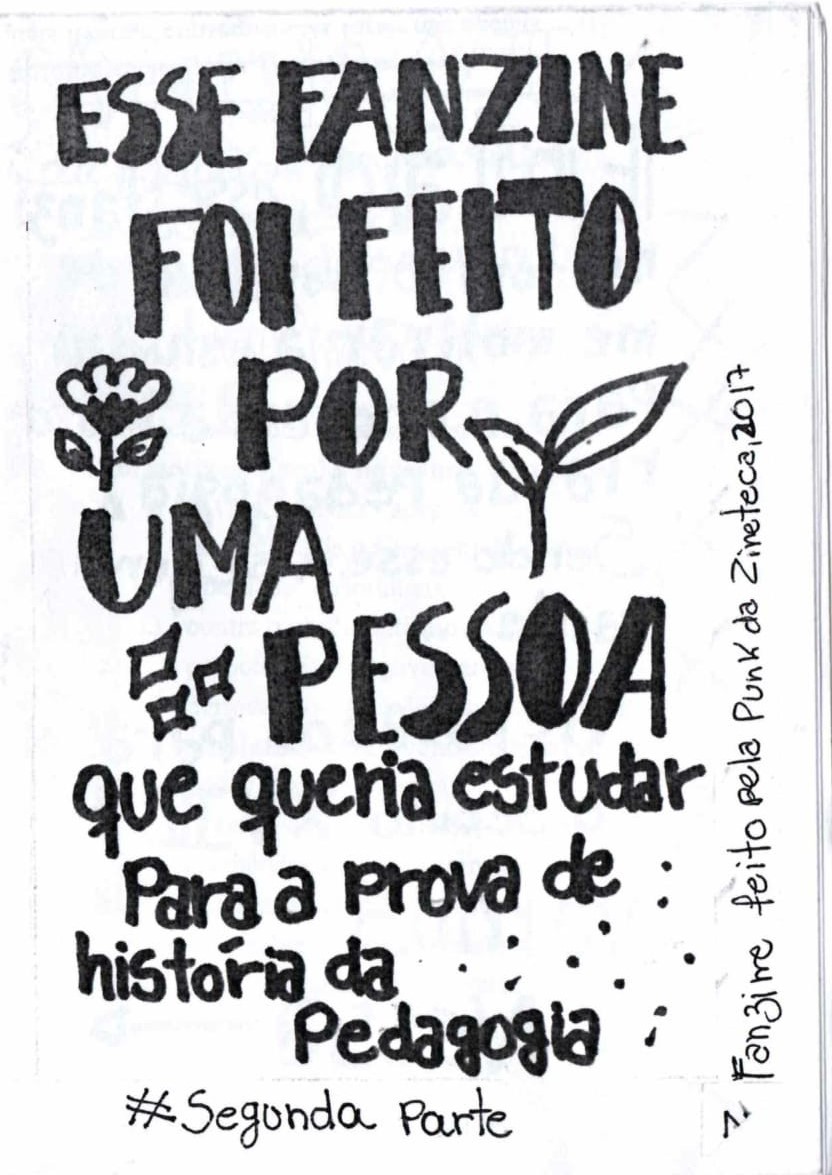 ESSE FANZINE
FOI FEITO
POR
UMA
PESSOA
que queria estudar
Para a prova de
história da
Pedagogia
#Segunda Parte
Fanzine feito pela Punk da Zineteca, 2017